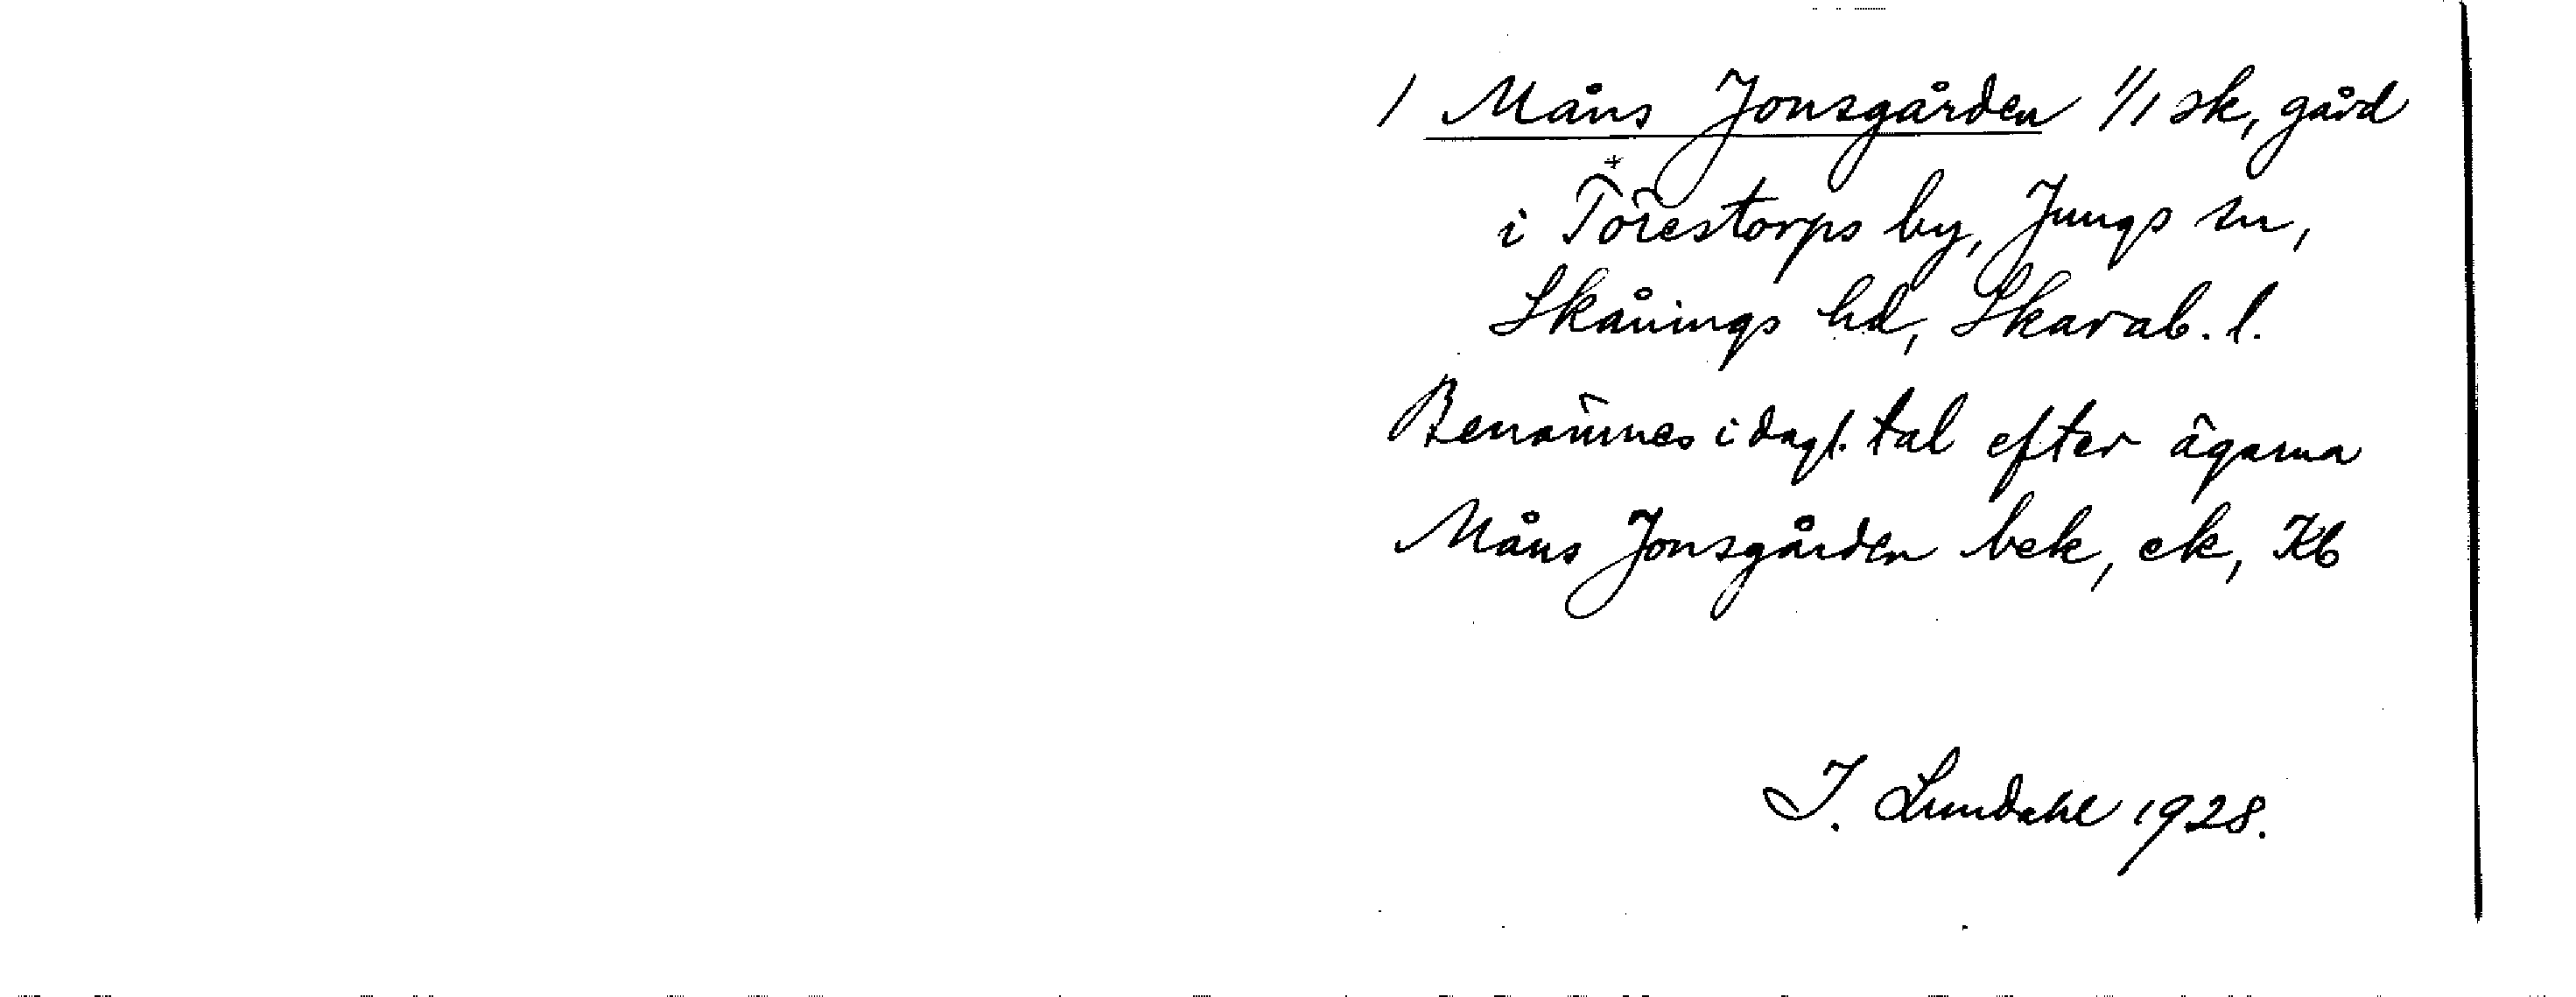 / Måns Jonsgården 1/1 sk, gård
i Törestorps by, Jungs sn,
Skånings hd, Skarab. l.
Benämnes i dagl. tal efter ägarna
Måns Jonsgården bek, ek, Kb
I. Lundahl 1928.